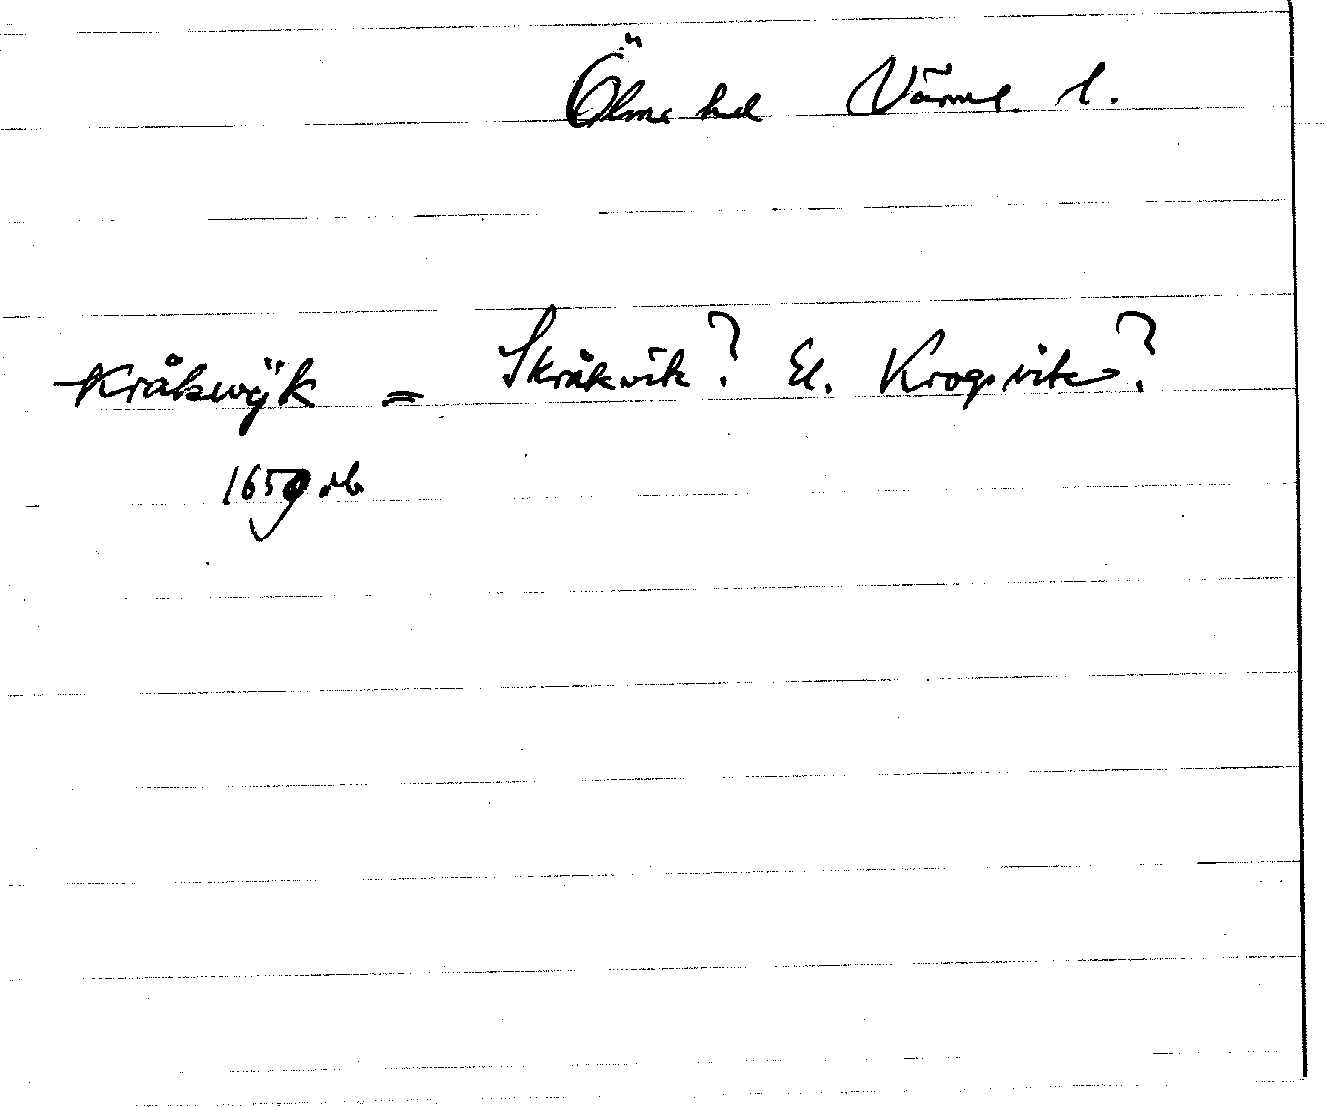 Ölme hd Värml. l.
Kråkwÿk = Skråkvik? El. Krogsvik?
1659 rb